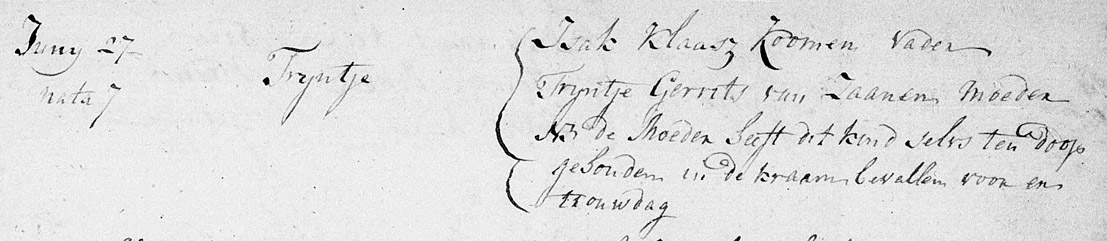 Juny 27
nata 7
Tryntje
Isak Klaasz Koomen vader
Tryntje Gerrits van Zaanen moeder
NB de moeder heeft dit kind selvs ten doop
gehouden in de kraam bevallen voor en
trouwdag